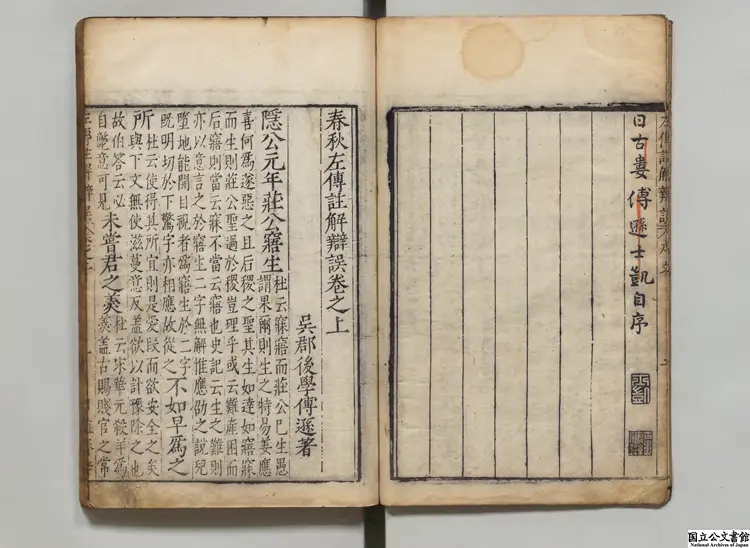 日古婁傅遜士凱自序
春秋左傳註解辯誤卷之上
吳郡後學傅遜著
隱公元年莊公寤生
杜云寐寤而莊公已生愚
謂果爾則生之特易姜應
喜何爲遂惡之且后稷之聖其生如達如寤寐
而生則莊公聖過於稷豈理乎或云難產困而
后寤則當云寐不當云寤也史記云生之難則
亦以意言之於寤生二字無解惟應劭之說兒
墮地能開目視者爲寤生於二字
既明切於下驚字亦相應故從之
不如早爲之
所
杜云使得其所宜則是愛段而欲安全之矣
與下文無使滋蔓意反蓋欲以計豫除之也
故伯答云必
自斃意可見
未嘗君之羹
杜云宋華元殺羊爲
羹蓋古賜賤官之常
国立公文書館
National Archives of Japan